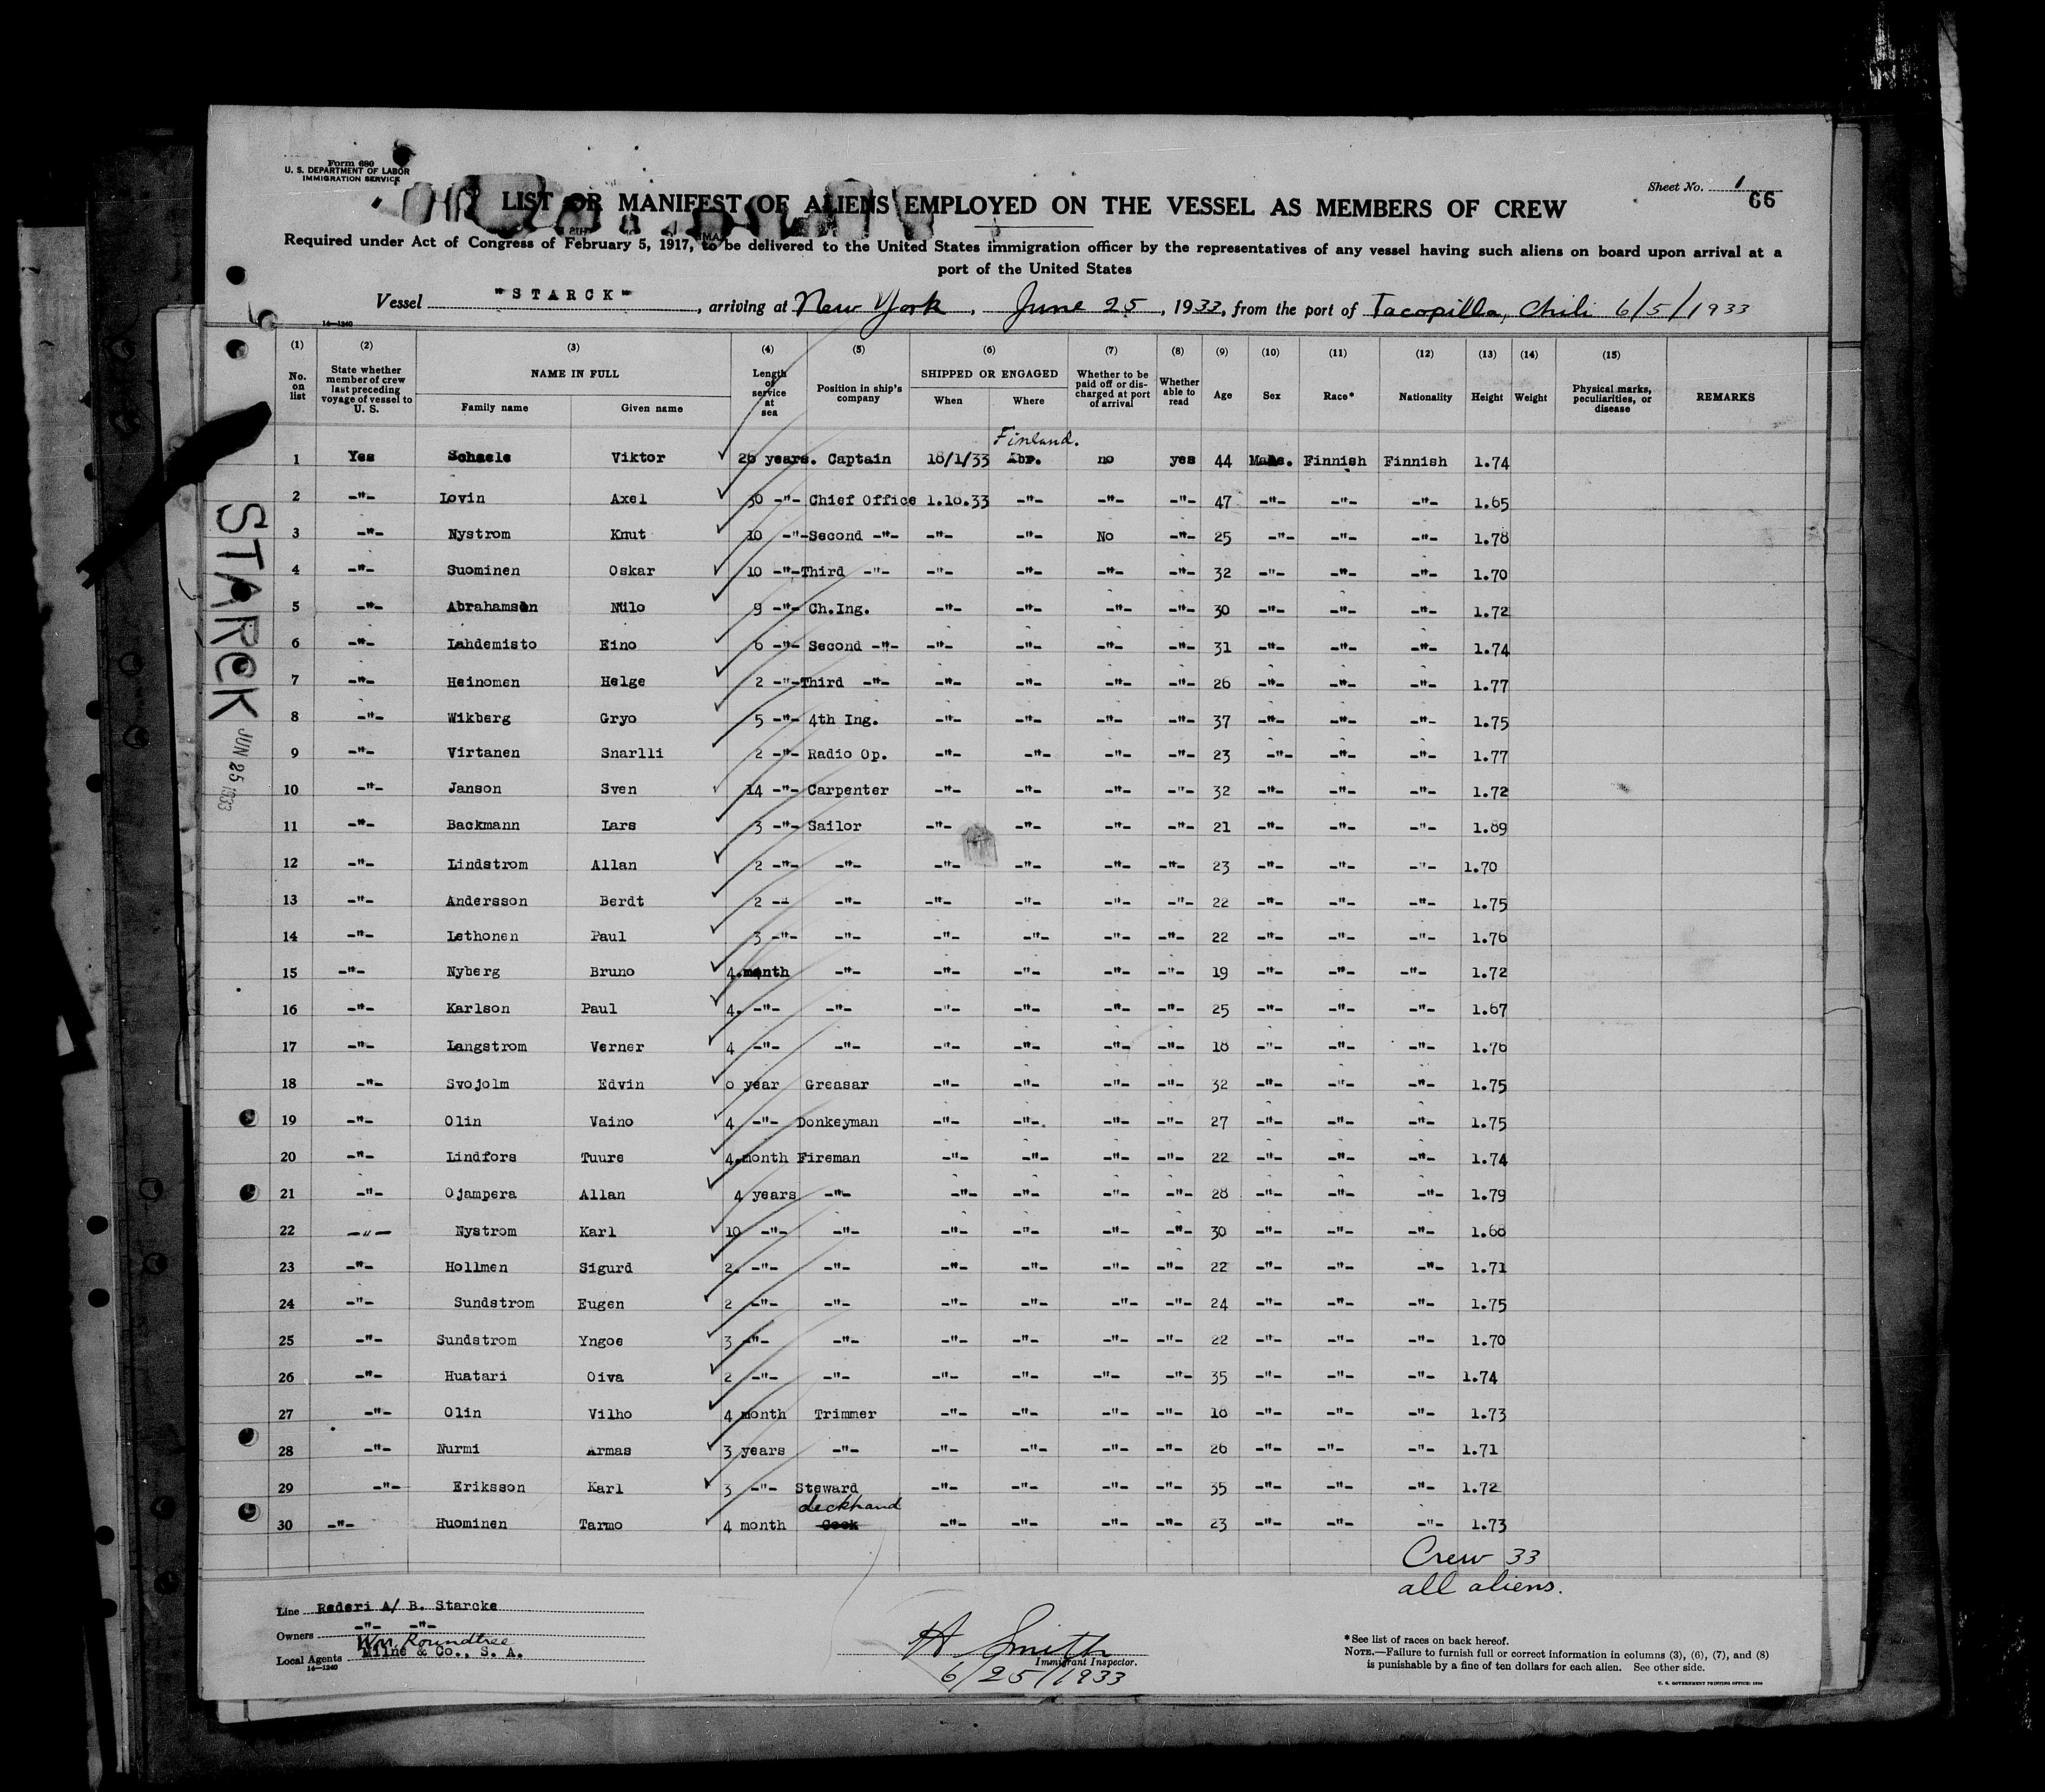 Form 680
U. S. DEPARTMENT OF LABOR
IMMIGRATION SERVICE
Sheet No. 1
66
LIST OR MANIFEST OF ALIENS EMPLOYED ON THE VESSEL AS MEMBERS OF CREW
Required under Act of Congress of February 5, 1917, to be delivered to the United States immigration officer by the representatives of any vessel having such aliens on board upon arrival at a
port of the United States
Vessel "STARCK", arriving at New York, June 25, 1933, from the port of Tacopilla, Chili 6/5/1933
14—1240
(1) (2) (3) (4) (5) (6) (7) (8) (9) (10) (11) (12) (13) (14) (15)
No. on list State whether member of crew last preceding voyage of vessel to U. S. NAME IN FULL Family name Given name Length of service at sea Position in ship's company SHIPPED OR ENGAGED When Where Whether to be paid off or discharged at port of arrival Whether able to read Age Sex Race* Nationality Height Weight Physical marks, peculiarities, or disease REMARKS
Finland.
1 Yes Schaele Viktor 26 years. Captain 18/1/33 Abr. no yes 44 Male. Finnish Finnish 1.74
2 -"- Lovin Axel 30 -"- Chief Office 1.18.33 -"- -"- -"- 47 -"- -"- -"- 1.65
3 -"- Nystrom Knut 10 -"- Second -"- -"- -"- No -"- 25 -"- -"- -"- 1.78
4 -"- Suominen Oskar 10 -"- Third -"- -"- -"- -"- -"- 32 -"- -"- -"- 1.70
5 -"- Abrahamsen Nilo 9 -"- Ch.Ing. -"- -"- -"- -"- 30 -"- -"- -"- 1.72
6 -"- Lahdemisto Eino 6 -"- Second -"- -"- -"- -"- -"- 31 -"- -"- -"- 1.74
7 -"- Heinomen Helge 2 -"- Third -"- -"- -"- -"- -"- 26 -"- -"- -"- 1.77
8 -"- Wikberg Gryo 5 -"- 4th Ing. -"- -"- -"- -"- 37 -"- -"- -"- 1.75
9 -"- Virtanen Snarlli 2 -"- Radio Op. -"- -"- -"- -"- 23 -"- -"- -"- 1.77
10 -"- Janson Sven 14 -"- Carpenter -"- -"- -"- -"- 32 -"- -"- -"- 1.72
11 -"- Backmann Lars 3 -"- Sailor -"- -"- -"- -"- 21 -"- -"- -"- 1.89
12 -"- Lindstrom Allan 2 -"- -"- -"- -"- -"- -"- 23 -"- -"- -"- 1.70
13 -"- Andersson Berdt 2 -"- -"- -"- -"- -"- -"- 22 -"- -"- -"- 1.75
14 -"- Lethonen Paul 3 -"- -"- -"- -"- -"- -"- 22 -"- -"- -"- 1.76
15 -"- Nyberg Bruno 4.month -"- -"- -"- -"- -"- 19 -"- -"- -"- 1.72
16 -"- Karlson Paul 4. -"- -"- -"- -"- -"- -"- 25 -"- -"- -"- 1.67
17 -"- Langstrom Verner 4 -"- -"- -"- -"- -"- -"- 18 -"- -"- -"- 1.76
18 -"- Svojolm Edvin 8 year Greasar -"- -"- -"- -"- 32 -"- -"- -"- 1.75
19 -"- Olin Vaino 4 -"- Donkeyman -"- -"- -"- -"- 27 -"- -"- -"- 1.75
20 -"- Lindfors Tuure 4.month Fireman -"- -"- -"- -"- 22 -"- -"- -"- 1.74
21 -"- Ojampera Allan 4 years -"- -"- -"- -"- -"- 28 -"- -"- -"- 1.79
22 -"- Nystrom Karl 10 -"- -"- -"- -"- -"- -"- 30 -"- -"- -"- 1.68
23 -"- Hollmen Sigurd 2. -"- -"- -"- -"- -"- -"- 22 -"- -"- -"- 1.71
24 -"- Sundstrom Eugen 2 -"- -"- -"- -"- -"- -"- 24 -"- -"- -"- 1.75
25 -"- Sundstrom Yngoe 3 -"- -"- -"- -"- -"- -"- 22 -"- -"- -"- 1.70
26 -"- Huatari Oiva 2 -"- -"- -"- -"- -"- -"- 35 -"- -"- -"- 1.74
27 -"- Olin Vilho 4 month Trimmer -"- -"- -"- -"- 18 -"- -"- -"- 1.73
28 -"- Nurmi Armas 3 years -"- -"- -"- -"- -"- 26 -"- -"- -"- 1.71
29 -"- Eriksson Karl 3 -"- Steward -"- -"- -"- -"- 35 -"- -"- -"- 1.72
deckhand
30 -"- Huominen Tarmo 4 month Cook -"- -"- -"- -"- 23 -"- -"- -"- 1.73
Crew 33
all aliens.
STARCK
JUN 25 1933
Line Rederi A/ B. Starcke
Owners -"- -"-
Wm. Roundtree
Local Agents Milne & Co., S. A.
14—1240
H Smith
Immigrant Inspector.
6/25/1933
*See list of races on back hereof.
NOTE.—Failure to furnish full or correct information in columns (3), (6), (7), and (8)
is punishable by a fine of ten dollars for each alien. See other side.
U. S. GOVERNMENT PRINTING OFFICE: